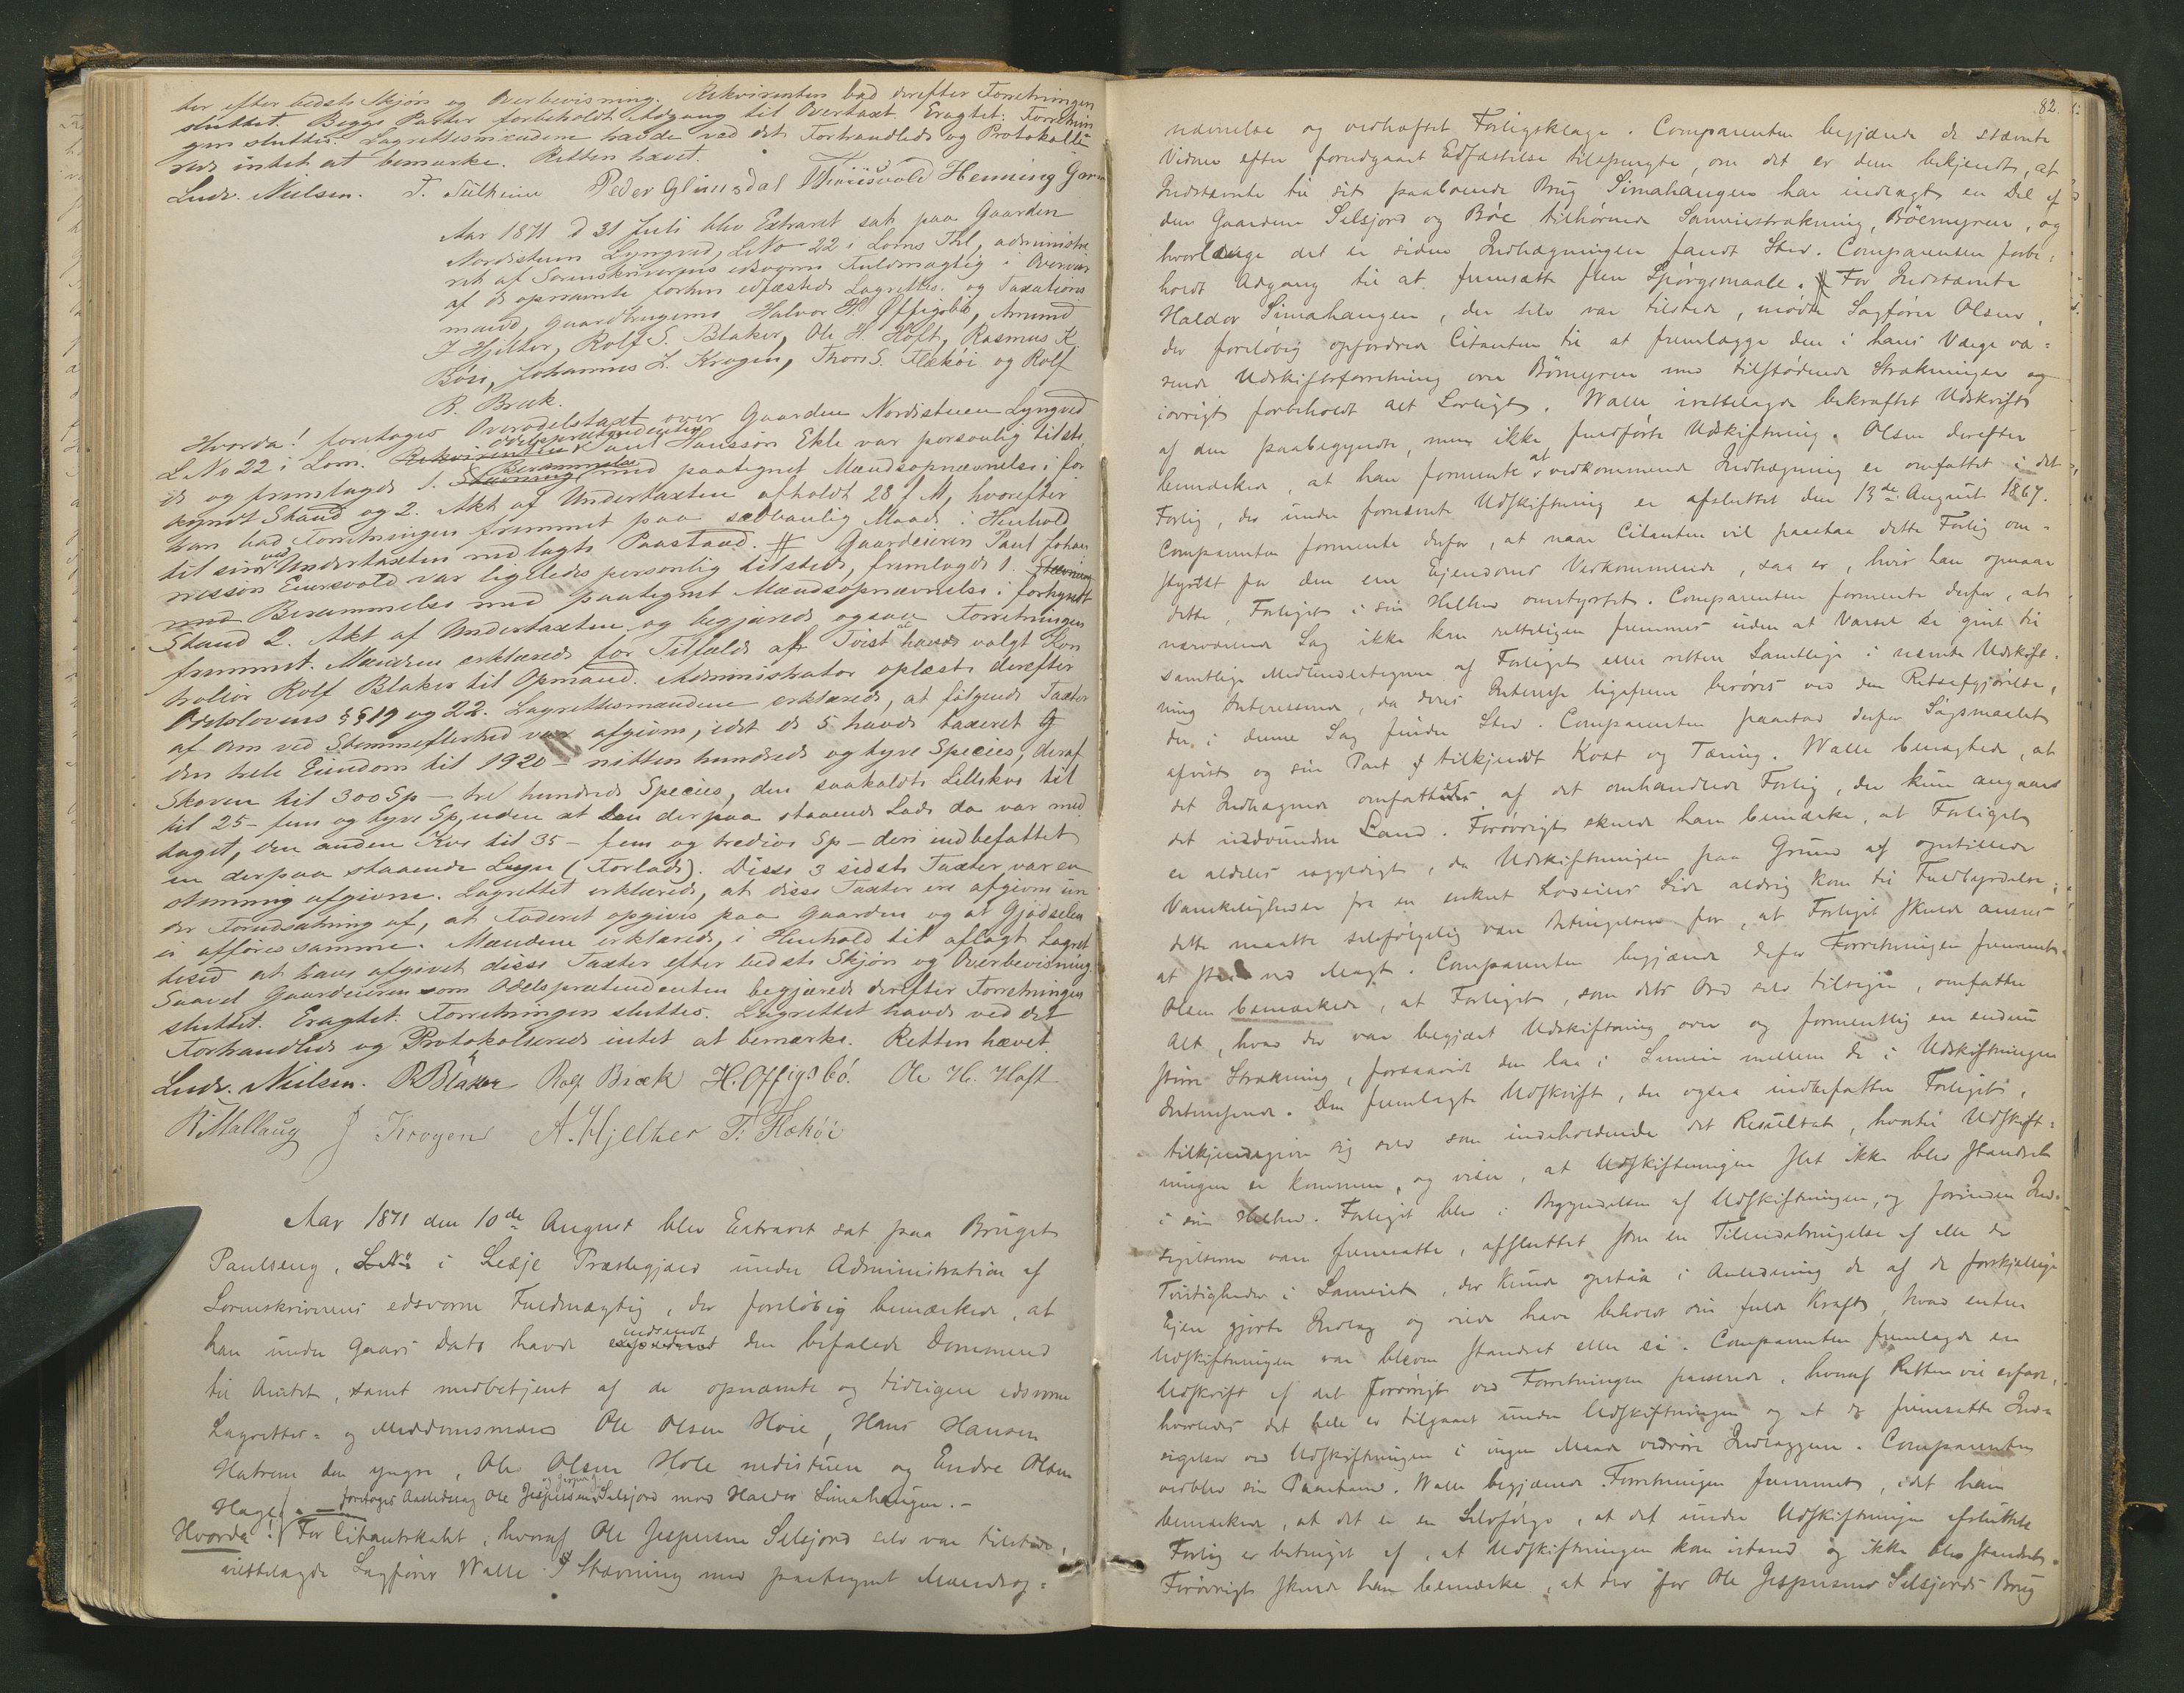 ter efter bedste Skjøn og Overbevisning. Rekvirenten bad derefter Forretningen
sluttet. Begge Parter forbeholdt Adgang til Overtaxt. Eragtet: Forretnin
gen sluttes. Lagrettesmændene havde ved det Forhandlede og Protokolle
rede intet at bemærke. Retten hævet.
Ludv. Nielsen. T. Sulheim Peder Glimsdal Henning
Aar 1871 d 31 Juli blev Extraret sat paa Gaarden
Nordistuen Lyngved, LNo 22 i Loms Thl, administre
ret af Sorenskriverens edsvorne Fuldmægtig i Overvær
af de opnævnte forhen edfæstede Lagrettes- og Taxations
mænd, Gaardbrugerne Halvor H. Offigsbø, Amund
J Hjelker, Rolf S. Blaker, Ole H. Hoft, Rasmus K
Bøie, Johannes L. Krogen, Thor S. Flækøi og Rolf
R. Bræk.
Hvorda! foretages Overodelstaxt over Gaarden Nordistuen Lyngved
L No 22 i Lom. Rekvirenten Odelsprætendenten Paul Hansson Ekle var personlig tilste
de og fremlagde 1. Stævning Berammelse med paategnet Mændsopnævnelse i for
kyndt Stand og 2. Akt af Undertaxten afholdt 28 f M, hvorefter
han bad Forretningen fremmet paa sædvanlig Maade i Henhold
til sin ved Undertaxten nedlagte Paastand. # Gaardeieren Paul Johan
nesson Eiersvold var ligeledes personlig tilstede, fremlagde 1. Stævning
med Berammelse med paategnet Mændsopnævnelse i forkyndt
Stand 2. Akt af Undertaxten og begjærede ogsaa Forretningen
fremmet. Mændene erklærede for Tilfælde af Tvist at have valgt Kon
trollør Rolf Blaker til Opmand. Administrator oplæste derefter
Odelslovens §§ 19 og 22. Lagrettesmændene erklærede, at følgende Taxter
af dem ved Stemmeflerhed var afgivne, idet de 5 havde taxeret
den hele Eiendom til 1920 - nitten hundrede og tyve Species, deraf
Skoven til 300 Sp - tre hundrede Species, den saakaldte Lillekve til
til 25 - fem og tyve Sp, uden at den derpaa staaende Lade da var med
taget, den anden Kve til 35 - fem og tredive Sp - deri indbefattet
en derpaa staaende Løyn (Forlade). Disse 3 sidste Taxter var en
stemmig afgivne. Lagrettet erklærede, at disse Taxter ere afgivne un
der Forudsætning af, at Foderet opgives paa Gaarden og at Gjødselen
ei afføres samme. Mændene erklærede, i Henhold til aflagt Lagret
tesed at have afgivet disse Taxter efter bedste Skjøn og Overbevisning.
Saavel Gaardeieren som Odelsprætendenten begjærede derefter Forretningen
sluttet. Eragtet: Forretningen sluttes. Lagrettet havde ved det
Forhandlede og Protokollerede intet at bemærke. Retten hævet.
Ludv. Nielsen. R Blaker Rolf Bræk H. Offigsbø. Ole H. Hoft
J Krogen A. Hjelker T. Flækøi
Aar 1871 den 10de August blev Extraret sat paa Bruget
Paulseng, LNo i Lesje Præstegjeld under Administration af
Sorenskriverens edsvorne Fuldmægtig, der foreløbig bemærkede, at
han under Gaars Dato havde indsendt den befalede Dommered
til Amtet, samt medbetjent af de opnævnte og tidligere edsvorne
Lagrettes- og Meddomsmænd Ole Olsen Hvie, Hans Hansen
Hatrem den yngre, Ole Olsen Hole nedistuen og Endre Olsen
Hage. foretages Aastedssag Ole Jespersen og Jesper Selsjord mod Haldor Simahaugen. -
Hvorda! For Citantskabet, hvoraf Ole Jespersen Selsjord selv var tilstede,
irettelagde Sagfører Walle Stævning med paategnet Mændsop-
82.
nævnelse og vedhæftet Forligsklage. Comparenten begjærede de stævnte
Vidner efter forudgaaet Edfæstelse tilspurgte, om det er dem bekjendt, at
Indstævnte til sit paaboende Brug Simahaugen har indtagt en Del af
den Gaardene Selsjord og Bøe tilhørende Sameiestrækning, Bøemyren, og
hvorlænge det er siden Indhægningen fandt Sted. Comparenten forbe-
holdt Adgang til at fremsætte flere Spørgsmaale. # For Indstævnte
Haldor Simahaugen, der selv var tilstede, mødte Sagfører Olsen,
der foreløbig opfordrede Citanten til at fremlægge den i hans Værge væ-
rende Udskiftsforretning over Bömyren med tilstødende Strækninger og
iøvrigt forbeholdt alt Lovligt. Walle irettelagde bekræftet Udskrift
af den paabegyndte, men ikke fuldførte Udskiftning. Olsen derefter
bemærkede, at han formente at vedkommende Indhægning er omfattet i det
Forlig, der under fornævnte Udskiftning er afsluttet den 13de August 1867.
Comparenten formente derfor, at naar Citanten vil paastaa dette Forlig om-
styrtet for den ene Ejendoms Vedkommende, saa er, hvis han opnaar
dette, Forliget i sin Helhed omstyrtet. Comparenten formente derfor, at
nærværende Sag ikke kan rettelig fremmes uden at Varsel er givet til
samtlige Meddeeltagere af Forliget eller rettere Samtlige i nævnte Udskift-
ning Interesserede, da deres Interesse ligefrem berøres ved den Retsafgjørelse,
der i denne Sag finder Sted. Comparenten paastod derfor Søgsmaalet
afvist og sin Part tilkjendt Kost og Tæring. Walle benægtede, at
det Indhægnede omfattedes af det omhandlede Forlig, der kun angaar
det indvundne Land. Forøvrigt skulde han bemærke, at Forliget
er aldeles ugyldigt, da Udskiftningen paa Grund af opstillede
Vanskeligheder fra en enkelt Lodeiers Side aldrig kom til Fuldbyrdelse;
dette maatte selvfølgelig være Betingelsen for, at Forliget skulde ansees
at staa ved Magt. Comparenten begjærede derfor Forretningen fremmet.
Olsen bemærkede, at Forliget, som dets Ord selv tilsiger, omfatter
Alt, hvad der var begjært Udskiftning over og formentlig en endnu
større Strækning, forsaavidt den laa i Sameie mellem de i Udskiftningen
Interesserede. Den fremlagte Udskrift, der ogsaa indbefatter Forliget,
tilkjendegiver sig selv som indeholdende det Resultat, hvortil Udskift-
ningen er kommen, og viser, at Udskiftningen slet ikke blev standset
i sin Helhed. Forliget blev i Begyndelsen af Udskiftningen, og forinden Ind-
sigelserne vare fremsatte, afsluttet som en Tilendebringelse af alle de
Tvistigheder i Sameiet, der kunde opstaa i Anledning de af de forskjellige
Ejere gjorte Indtag og vilde have beholdt sin fulde Kraft, hvad enten
Udskiftningen var bleven standset eller ei. Comparenten fremlagde en
Udskrift af det forøvrigt ved Forretningen passerede, hvoraf Retten vil erfare,
hvorledes det hele er tilgaaet under Udskiftningen og at de fremsatte Ind-
sigelser ved Udskiftningen i ingen Maade vedrøre Indtaggene. Comparenten
vedblev sin Paastand. Walle begjærede Forretningen fremmet, idet han
bemærkede, at det er en Selvfølge, at det under Udskiftningen afsluttede
Forlig er betinget af, at Udskiftningen kom istand og ikke blev standset.
Forøvrigt skulde han bemærke, at der for Ole Jespersens Selsjords Brug